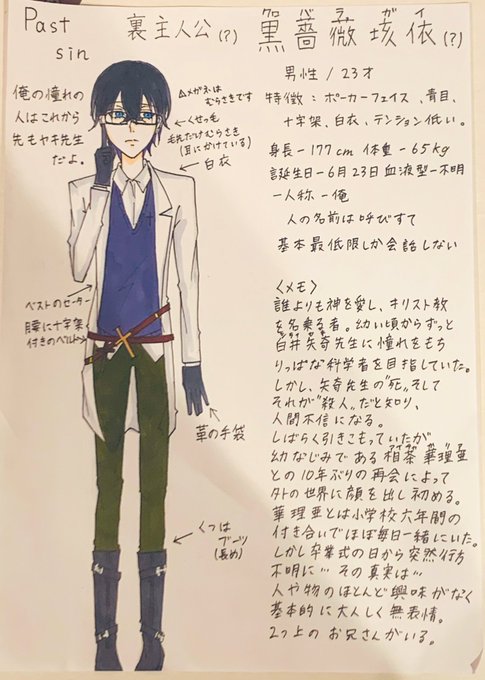 Past
sin
裏主人公(?)
黒薔薇垓依(?)
クロ バラ ガイ
男性/23才
特徴:ポーカーフェイス、青目、
十字架、白衣、テンション低い。
身長-177cm 体重-65kg
誕生日-6月23日血液型-不明
一人称-俺
人の名前は呼びすて
基本最低限しか会話しない
俺の憧れの
人はこれから
先もヤキ先生
だよ。
△メガネは
むらさきです
くせっ毛
毛先だけむらさき
(耳にかけている)
白衣
ベストのセーター
腰に十字架
付きのベルト
革の手袋
くつは
ブーツ
(長め)
<メモ>
誰よりも神を愛し、キリスト教
を名乗る者。幼い頃からずっと
白井矢奇先生に憧れをもち
りっぱな科学者を目指していた。
しかし、矢奇先生の"死"そして
それが"殺人"だと知り、
人間不信になる。
しばらく引きこもっていたが
幼なじみである 華理亜
との10年ぶりの再会によって
外の世界に顔を出し初める。
華理亜とは小学校六年間の
付き合いでほぼ毎日一緒にいた。
しかし卒業式の日から突然行方
不明に…その真実は…
人や物のほとんど興味がなく
基本的に大人しく無表情。
2つ上のお兄さんがいる。